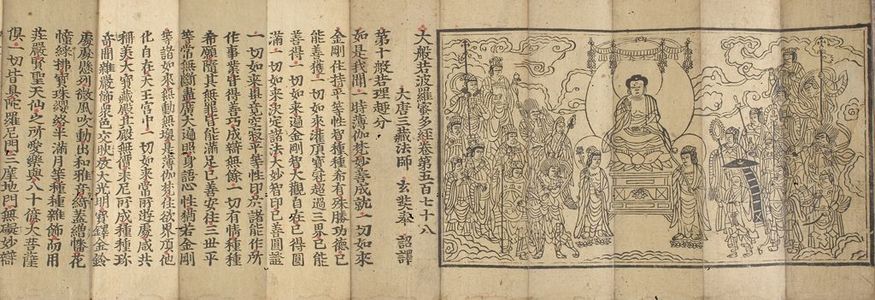 大般若波羅蜜多經卷第五百七十八
大唐三藏法師玄奘奉 詔譯
第十般若理趣分
如是我聞一時薄伽梵妙善成就一切如來
金剛住持平等性智種種希有殊勝功德已
能善獲一切如來灌頂寶冠超過三界已能
善得一切如來遍金剛智大觀自在已得圓
滿一切如來決定諸法大妙智印已善圓證
一切如來畢竟空寂平等性印於諸能作所
作事業皆得善巧成辦無餘一切有情種種
希願隨其無罪皆能滿足已善安住三世平
等常無斷盡廣大遍照身語心性猶若金剛
等諸如來無動無壞是薄伽梵住欲界頂他
化自在天王宮中一切如來常所遊處咸共
稱美大寶藏殿其殿無價末尼所成種種珍
奇間雜嚴飾眾色交映放大光明寶鐸金鈴
處處懸列微風吹動出和雅音綺蓋繒幡花
幢綵拂寶珠瓔珞半滿月等種種雜飾而用
莊嚴賢聖天仙之所愛樂與八十億大菩薩
俱一切皆具陀羅尼門三摩地門無礙妙辯